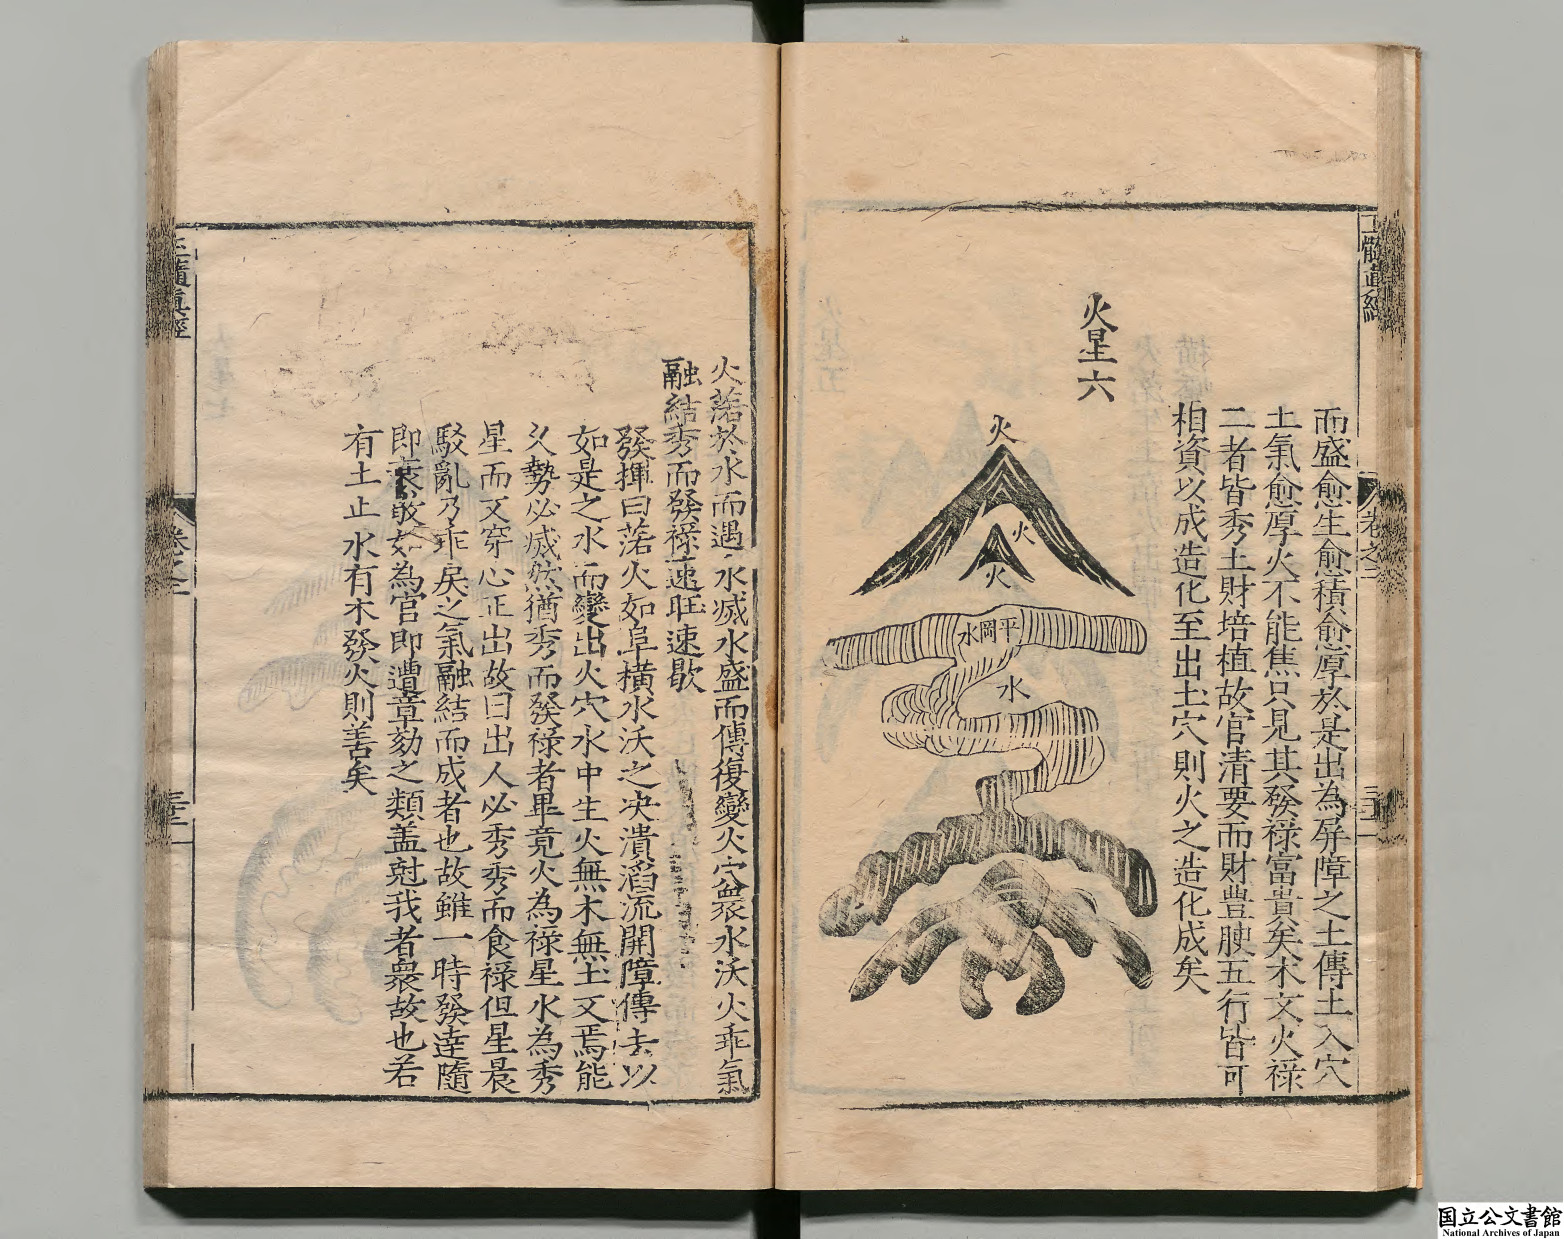 而盛愈生愈積愈厚於是出為屏障之土傳土入穴
土氣愈厚火不能焦只見其發祿富貴矣木文火祿
二者皆秀土財培植故官清要而財豊腴五行皆可
相資以成造化至出土穴則火之造化成矣
火星六
火
火
火
平岡水
水
火落於水而遇水減水盛而傳復變火穴衆水沃火乖氣
融結秀而發祿速旺速歇
發揮曰落火如阜橫水沃之决潰滔流開障傳去以
如是之水而變出火穴水中生火無木無土又焉能
乆勢必滅然猶秀而發祿者畢竟火為祿星水為秀
星而又穿心正出故曰出人必秀秀而食祿但星晨
駁亂乃乖戾之氣融結而成者也故雖一時發達隨
即衰敗如為官即遭章劾之類盖尅我者衆故也若
有土止水有木發火則善矣
玉髓真經
卷之二
玉髓真經
卷之二
国立公文書館
National Archives of Japan